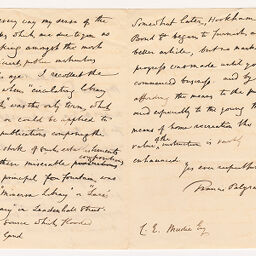 convey my sense of the
which are due to you as
king amongst the most
public benefactors
age. I recollect the
when "circulating library
was the only term, which
or could be applied to
publications composing the
stock of such establishments
their miserable compositions
principal fountain was
"Minerva Library" or "Lane's
" in Leadenhall Street
source which flooded
land
Somewhat later, Hookham
Bond St began to furnish
better article, but no marked
progress was made until you
commenced business and by
affording the means to the public
and especially to the young the
means of home recreation the
value of the instruction is vastly
enhanced.
Yours ever respectfully
Francis Palgrave
C. E. Mudie Esq